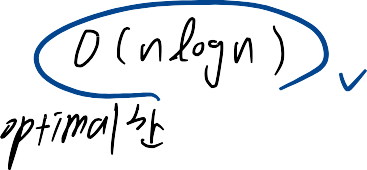 O(nlogn)
optimal한